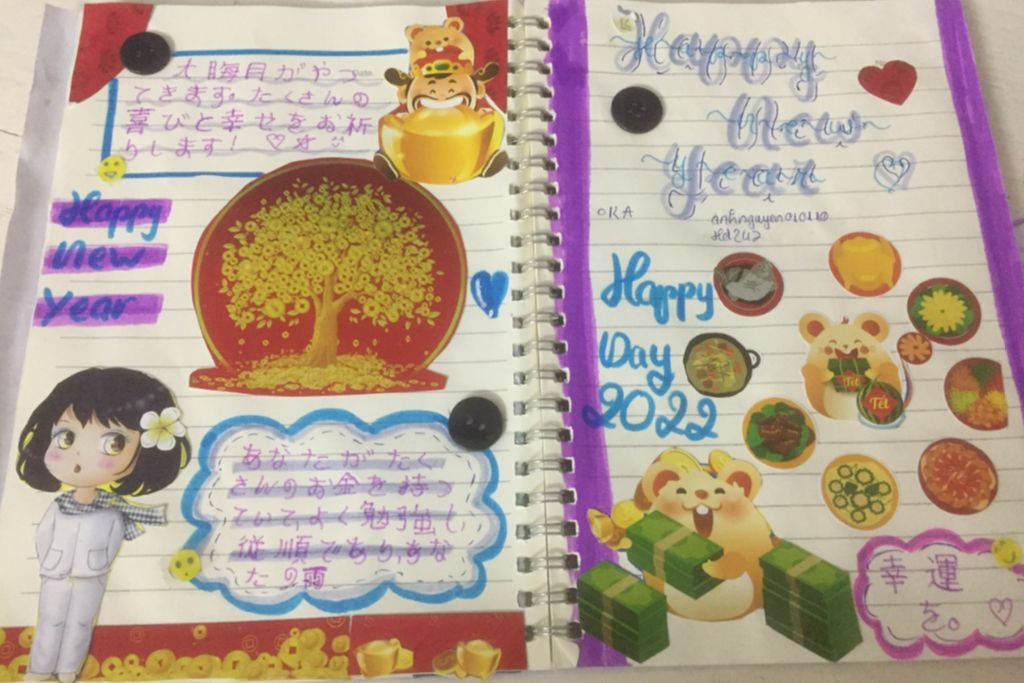 大晦日がやっ
てきます。たくさんの
喜びと幸せをお祈
りします!
Happy
New
Year
あなたがたく
さんのお金を持っ
ていて、よく勉強し、
従順であり、あな
たの雨
Happy
New
Year
OKA
Happy
Day
2022
Tết
Tết
幸運
を。